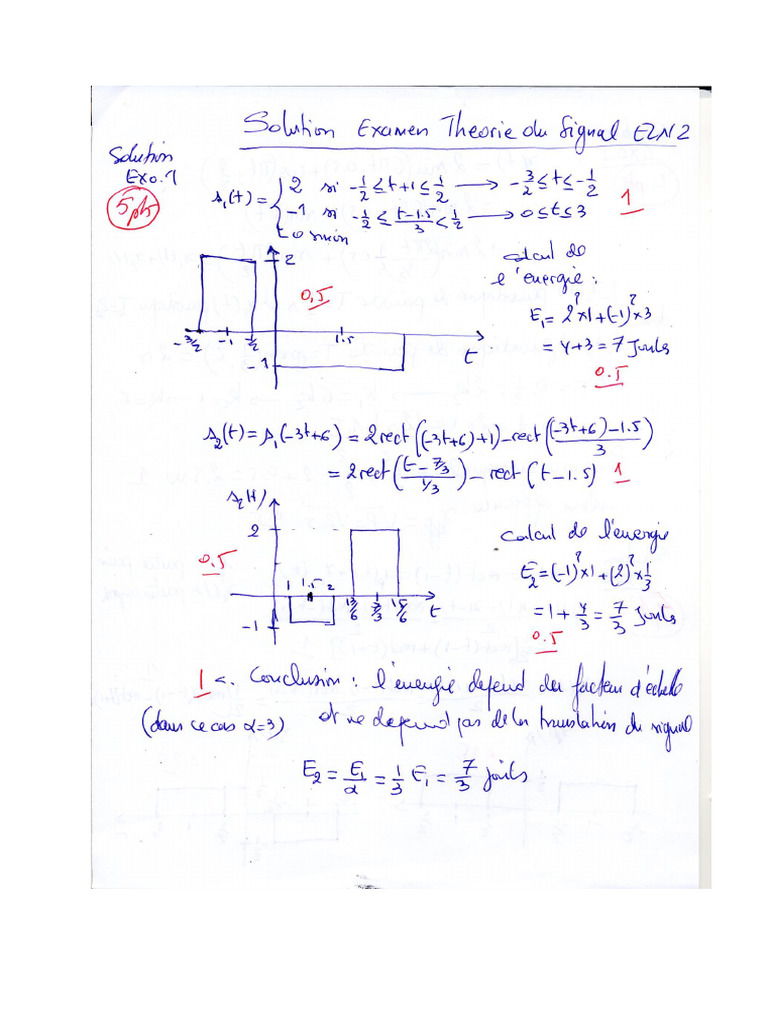 Solution Examen Théorie du Signal ELN2
Solution
Exo.1
5 pts
s₁(t) = { 2 si -1/2 ≤ t+1 ≤ 1/2 → -3/2 ≤ t ≤ -1/2
-1 si -1/2 ≤ (t-1.5)/3 < 1/2 → 0 ≤ t ≤ 3
1
0 sinon
2
0,5
-3/2 -1 -1/2 1.5 t
-1
calcul de
l'énergie :
E₁ = 2² × 1 + (-1)² × 3
= 4 + 3 = 7 Jouls
0.5
s₂(t) = s₁(-3t+6) = 2rect((-3t+6)+1) - rect(((-3t+6)-1.5)/3)
= 2rect((t - 7/3)/(1/3)) - rect(t - 1.5) 1
s₂(t)
2
0.5
1 1.5 2 13/6 7/3 15/6 t
-1
calcul de l'énergie
E₂ = (-1)² × 1 + (2)² × 1/3
= 1 + 4/3 = 7/3 Jouls
0.5
1 Conclusion : l'énergie depend du facteur d'échelle
(dans ce cas α=3) et ne depend pas de la translation du signal
E₂ = E₁/α = 1/3 E₁ = 7/3 jouls